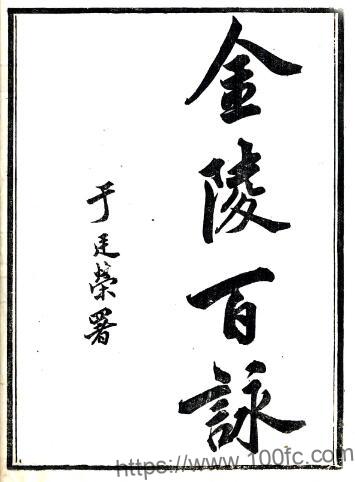 金陵百詠
于廷榮署
https://www.100fc.com